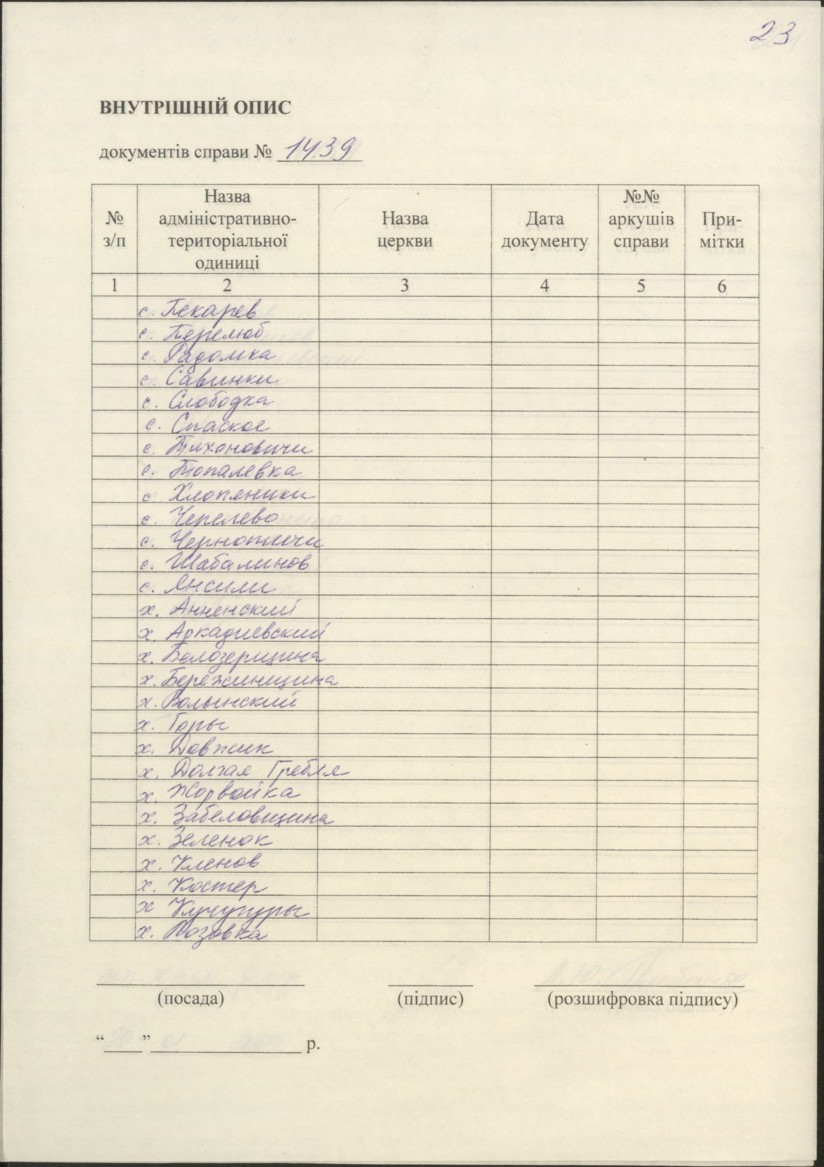 23
ВНУТРІШНІЙ ОПИС
документів справи № 1439
№ з/п
Назва адміністративно-територіальної одиниці
Назва церкви
Дата документу
№№ аркушів справи
При-мітки
1 2 3 4 5 6
с. Пекарев
с. Перелюб
с. Радомка
с. Савинки
с. Слободка
с. Спаское
с. Тихоновичи
с. Топалевка
с. Хлопяники
с. Чепелево
с. Чернотичи
с. Шабалинов
с. Янсили
х. Анненский
х. Аркадиевский
х. Белозерщина
х. Бережинщина
х. Волынский
х. Горы
х. Довжик
х. Долгая Гребля
х. Жорвойка
х. Забеловщина
х. Зеленок
х. Кленов
х. Костер
х Кучугуры
х. Лозовка
(посада) (підпис) (розшифровка підпису)
“ ” р.